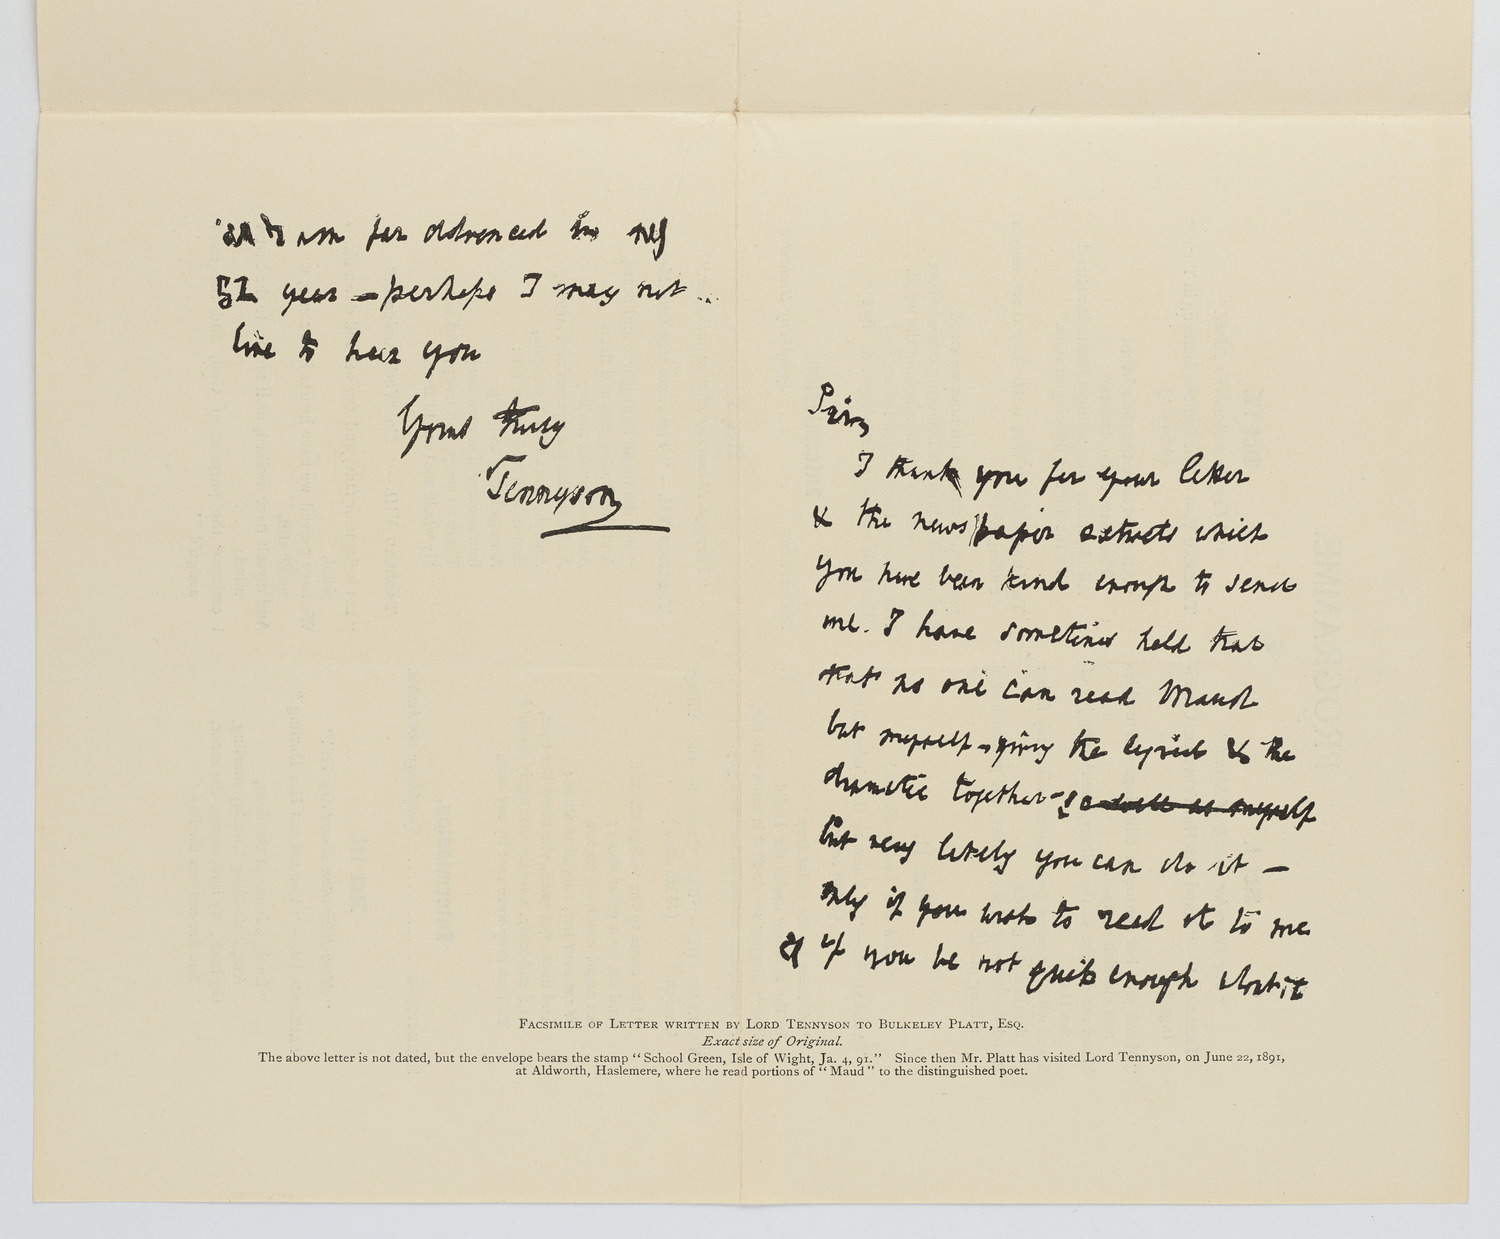 Sir,
I thank you for your letter
& the newspaper extracts which
you have been kind enough to send
me. I have sometimes held that
that no one can read Maud
but myself – giving the lyrical & the
dramatic together – so well as myself
but very likely you can do it –
only if you wish to read it to me
if you be not quick enough about it
am far advanced in my
year – perhaps I may not
live to hear you
Yours truly
Tennyson
Facsimile of Letter written by Lord Tennyson to Bulkeley Platt, Esq.
Exact size of Original.
The above letter is not dated, but the envelope bears the stamp “School Green, Isle of Wight, Ja. 4, 91.” Since then Mr. Platt has visited Lord Tennyson, on June 22, 1891,
at Aldworth, Haslemere, where he read portions of “Maud” to the distinguished poet.